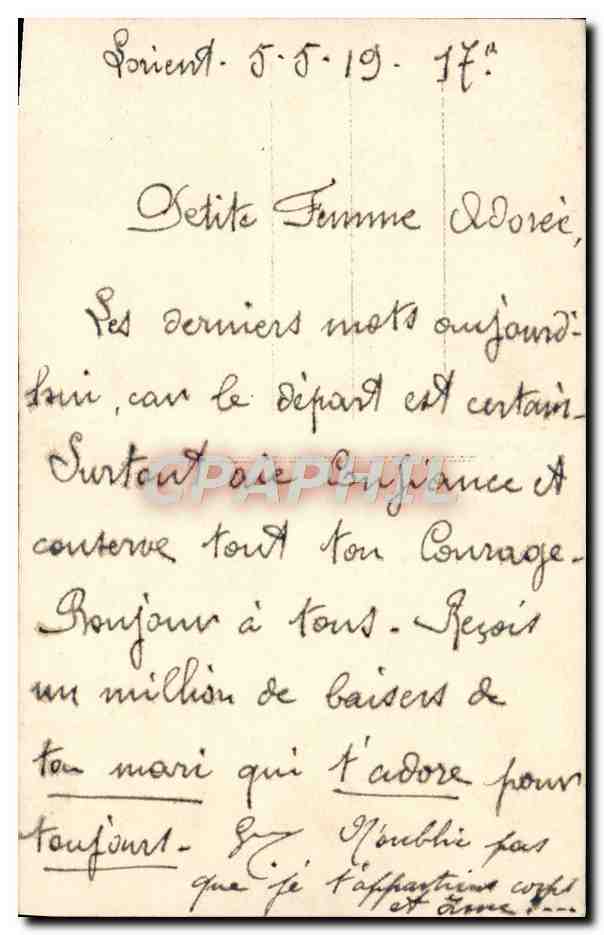 Lorient. 5.5.19. 17h
Petite Femme Adorée,
Les derniers mots aujourd'-
hui, car le départ est certain-
Surtout aie Confiance et
CPAPHIL
conserve tout ton Courage.
Bonjour à tous. Reçois
un million de baisers de
ton mari qui t'adore pour
toujours. N'oublie pas
que je t'appartiens corps
et âme!...